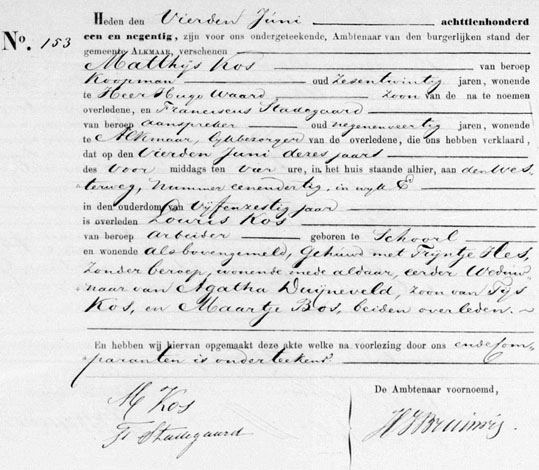 Heden den Vierden Juni achttienhonderd
No. 153
een en negentig, zijn voor ons ondergeteekende, Ambtenaar van den burgerlijken stand der
gemeente ALKMAAR, verschenen
Matthijs Kos van beroep
Koopman oud zesentwintig jaren, wonende
te Heer Hugo Waard zoon van de na te noemen
overledene, en Franciscus Stadegaard
van beroep aanspreker oud negenenveertig jaren, wonende
te Alkmaar, Lijkbezorger van de overledene, die ons hebben verklaard,
dat op den Vierden Juni dezes jaars
des voor middags ten vier ure, in het huis staande alhier, aan den Wes„
terweg, nummer eenendertig, in wijk E
in den ouderdom van Vijfenzestig jaar
is overleden Louris Kos
van beroep arbeider geboren te Schoorl
en wonende als bovengemeld, gehuwd met Trijntje Hes,
zonder beroep, wonende mede aldaar, eerder Weduw„
naar van Agatha Duijneveld, zoon van Tijs
Kos, en Maartje Bos, beiden overleden.
En hebben wij hiervan opgemaakt deze akte welke na voorlezing door ons en de Com„
paranten is onderteekend
De Ambtenaar voornoemd,
M Kos
Fr Stadegaard
HJBruinvis